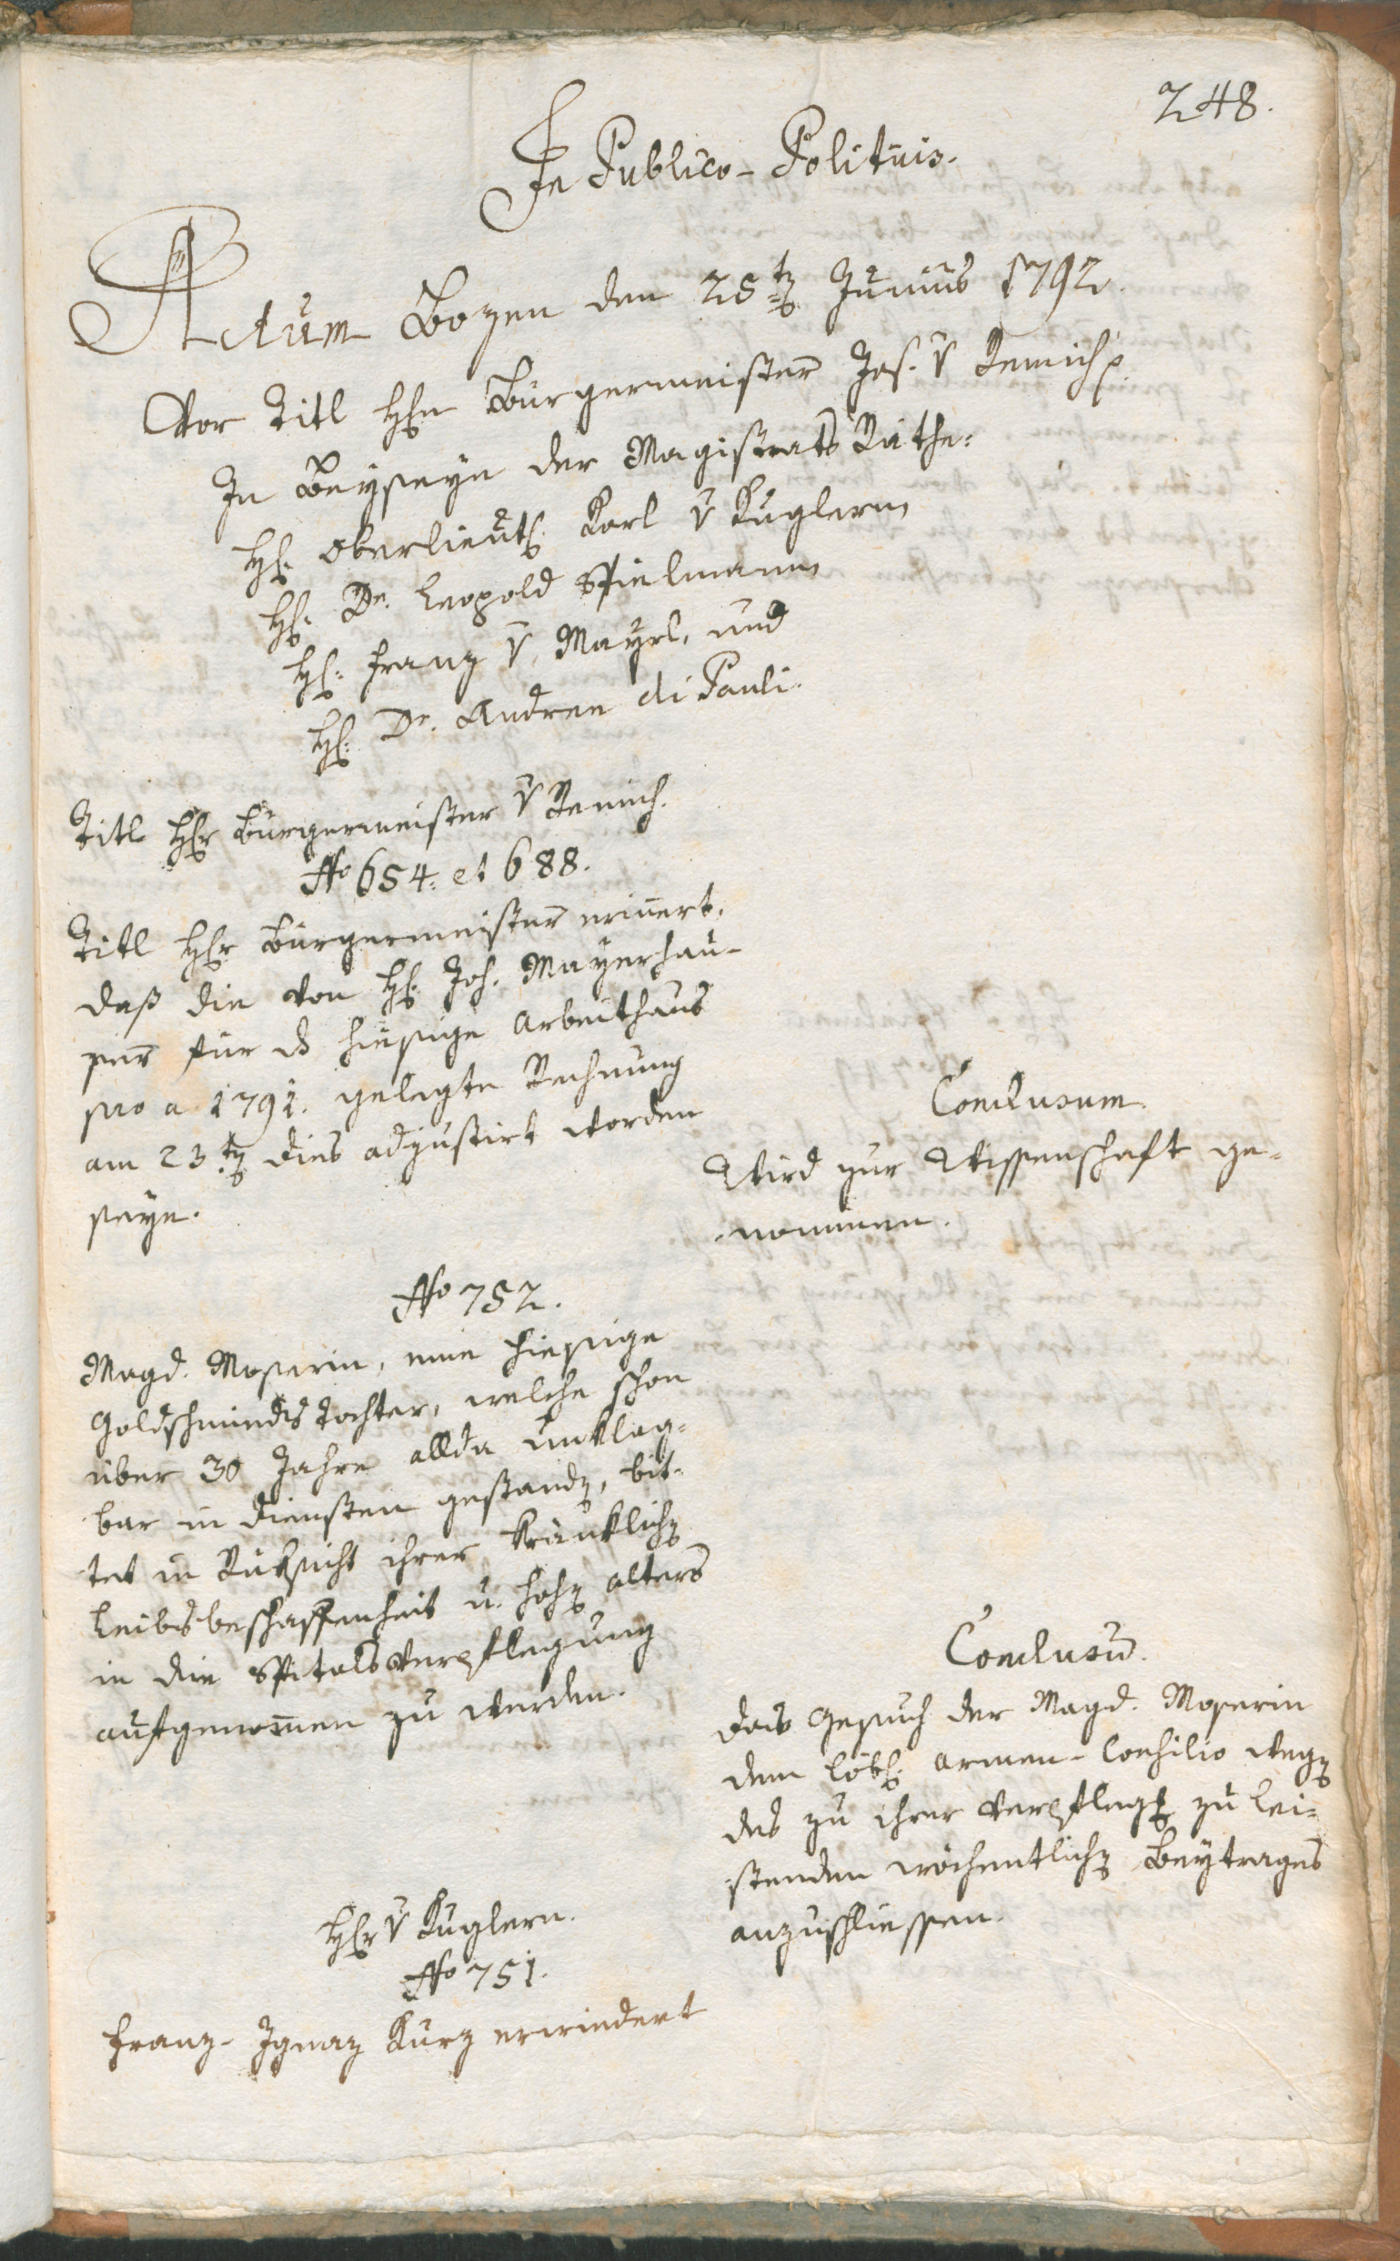 248.
In Publico-Politicis.
Actum Bozen den 25t Junius 1792.
Vor Titl Hhn Bürgermeister Jos. v Remich p.
In Beyseyn der Magistrats Räthe:
H: Oberlieut: Karl v Kuglern
H: Dr. Leopold Spielmann
H: Franz v. Mayrl, und
H: Dr. Andree di Pauli.
Titl Hhr Bürgermeister v Remich.
No 654. et 688.
Titl Hhr Bürgermeister erinert,
daß die von H: Joh. Mayerhau-
ser für d hiesige Arbeithaus
pro a. 1791. gelegte Rechnung
am 23t dies adjustirt worden
seye.
Conclusum.
Wird zur Wissenschaft ge-
nommen.
No 752.
Magd. Moserin, eine hiesige
Goldschmids Tochter, welche schon
über 30 Jahre allda unklag-
bar in Diensten gestand, bit-
tet in Rüksicht ihrer kränklich
Leibsbeschaffenheit u. hoh Alters
in die Spitalsverpflegung
aufgenomen zu werden.
Conclusum.
Das Gesuch der Magd. Moserin
dem löbl: Armen-Consilio weg
des zu ihrer Verpfleg zu lei-
stenden wöchentlich Beytrages
anzuschliessen.
Hhr v Kuglern.
No 751.
Franz Ignaz Kurz erwiedert